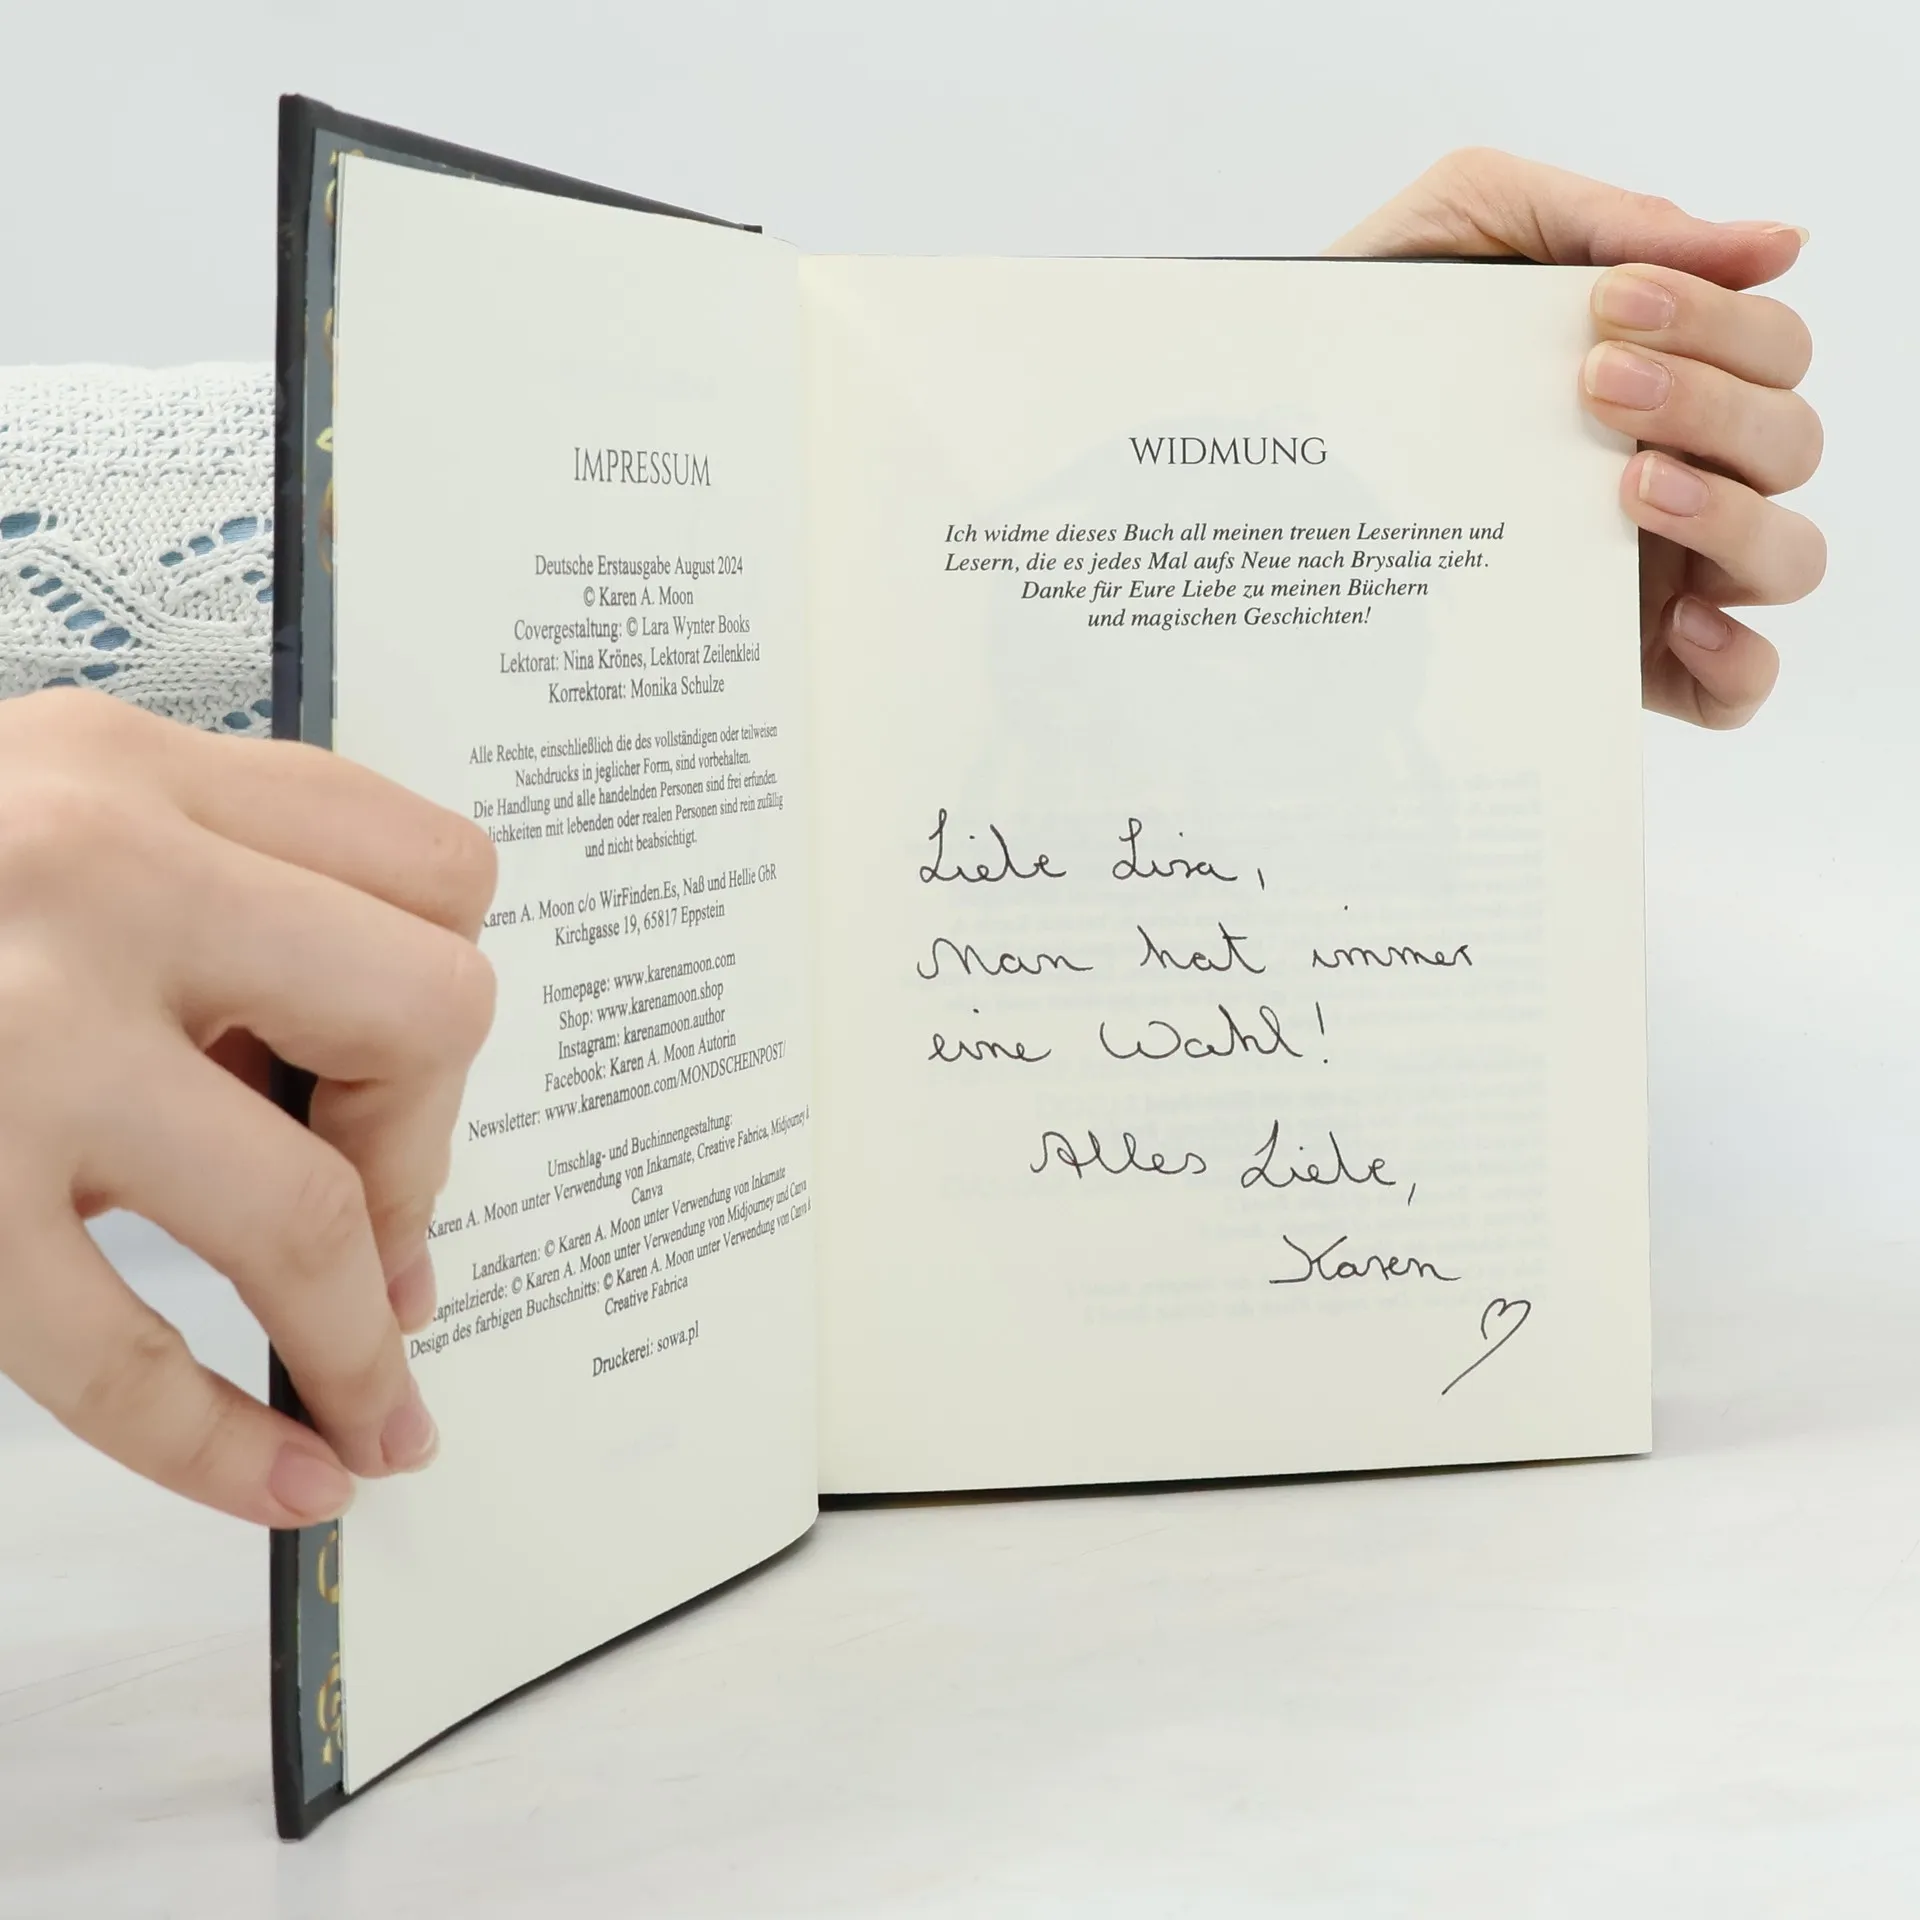 IMPRESSUM
Deutsche Erstausgabe August 2024
© Karen A. Moon
Covergestaltung: © Lara Wynter Books
Lektorat: Nina Krönes, Lektorat Zeilenkleid
Korrektorat: Monika Schulze
Alle Rechte, einschließlich die des vollständigen oder teilweisen
Nachdrucks in jeglicher Form, sind vorbehalten.
Die Handlung und alle handelnden Personen sind frei erfunden.
mit lebenden oder realen Personen sind rein zufällig
und nicht beabsichtigt.
Karen A. Moon c/o WirFinden.Es, Naß und Hellie GbR
Kirchgasse 19, 65817 Eppstein
Homepage: www.karenamoon.com
Shop: www.karenamoon.shop
Instagram: karenamoon.author
Facebook: Karen A. Moon Autorin
Newsletter: www.karenamoon.com/MONDSCHEINPOST/
Umschlag- und Buchinnengestaltung:
Karen A. Moon unter Verwendung von Inkarnate, Creative Fabrica, Midjourney &
Canva
Landkarten: © Karen A. Moon unter Verwendung von Inkarnate
Kapitelzierde: © Karen A. Moon unter Verwendung von Midjourney und Canva
Design des farbigen Buchschnitts: © Karen A. Moon unter Verwendung von Canva &
Creative Fabrica
Druckerei: sowa.pl
WIDMUNG
Ich widme dieses Buch all meinen treuen Leserinnen und
Lesern, die es jedes Mal aufs Neue nach Brysalia zieht.
Danke für Eure Liebe zu meinen Büchern
und magischen Geschichten!
Liebe Lisa,
Man hat immer
eine Wahl!
Alles Liebe,
Karen